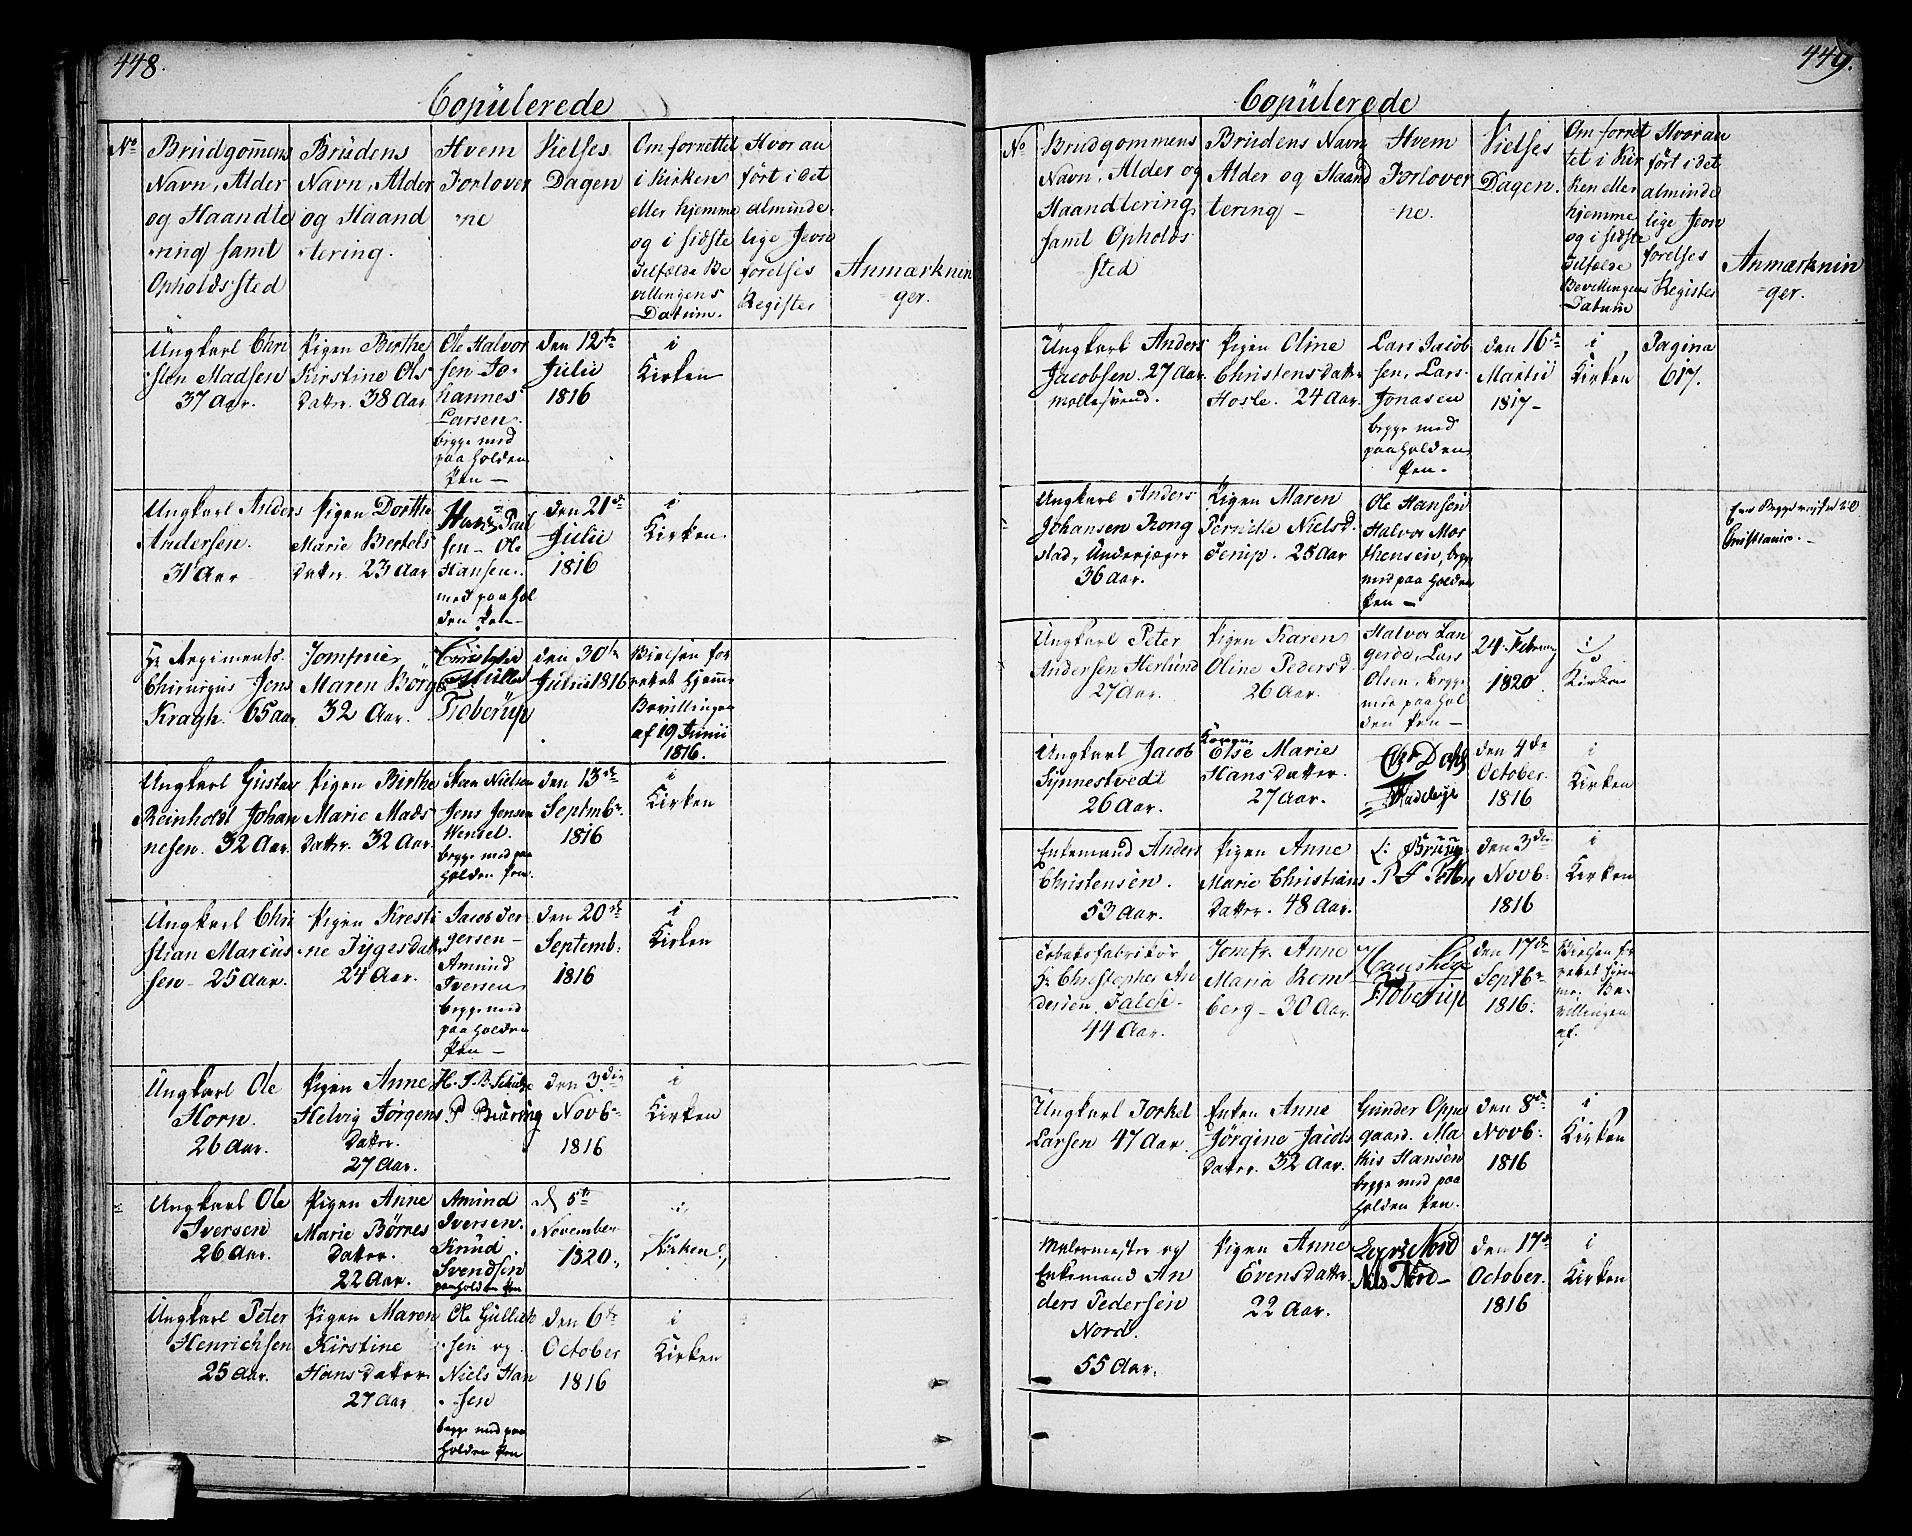 448.
Copülerede
No
Brüdgom̄ens
Navn, Alder
og Haandte
ring samt
Opholdssted
Brüdens
Navn, Alder
og Haand
tering.
Hvem
Forlover
ne
Vielses
Dagen
Om forrettet
i Kirken
eller hjemme
og i sidste
Tilfælde Be
villingens
Datum.
Hvor an
ført i det
alminde
lige Jevn
förelses
Register
Anmærknin
ger.
Üngkarl Chri
sten Madsen
37 Aar.
Pigen Berthe
Kirstine Ols
Datter. 38 Aar
Ole Halvor
sen. Jo-
hannes
Larsen.
begge med
paaholden
Pen -
den 12te
Julii
1816
i
Kirken
Ungkarl Anders
Andersen.
31 Aar
Pigen Dorthe
Marie Bertels
Datter 23 Aar
Hans Poul
sen - Ole
Hansen.
med paahol
den Pen -
den 21de
Julii
1816
i
Kirken.
Hr Regiments-
Chirurgus Jens
Kragh. 65 aar
Jomfrue
Maren Borge
32 Aar.
Müller
Floberüp
den 30te
Julii 1816
Vielsen for
rettet hjemme
Bevillingen
af 19 Junii
1816.
Ungkarl Gustav
Reinholdt Johan
nesen. 32 Aar.
Pigen Birthe
Marie Mads
Datter. 32 Aar.
Nielsen
Jens Jensen
Wensel.
begge med paa
holden Pen.
den 13de
Septembr.
1816
i
Kirken
Ungkarl Chri
stian Marcus
sen - 25 Aar.
Pigen Kresti
ne Tygesdatter
24 Aar.
Jacob Jør
gensen -
Amund
Iversen
begge med
paaholden
Pen -
den 20de
Septemb:
1816
i
Kirken
Ungkarl Ole
Horn.
26 Aar.
Pigen Anne
Helvig Jörgens
Datter.
27 Aar.
H. J. B. Schultze
P Buöring
den 3die
Novb-
1816
i
Kirken
Ungkarl Ole
Iversen
26 Aar.
Pigen Anne
Marie Börres
Datter.
22 Aar.
Amund
Iversen.
Knud
Svendsen
paaholden Pen
d. 5te
November
1820.
i
Kirken
Ungkarl Peter
Henrichsen
25 Aar.
Pigen Maren
Kirstine
Hansdatter.
27 Aar
Ole Gullich
sen og
Niels Han
sen
begge med paa
holden Pen
den 6te
October
1816
i
Kirken
449.
Copülerede
No
Brudgommens
Navn, Alder og
Haandtering
samt Opholds
sted
Brüdens Navn
Alder og Haand
tering -
Hvem
Forlover
ne.
Vielses
Dagen.
Om forret
tet i Kir
ken eller
hjemme
og i sidste
Tilfælde
Bevillingens
Datum
Hvor an
ført i det
alminde
lige Jevn
förelses
Register
Anmærknin
ger.
Üngkarl Anders
Jacobsen. 27 Aar
Møllesvend.
Pigen Oline
Christensdatter
Hosle. 24 Aar.
Lars Jacob
sen, Lars
Jonasen
begge med
paaholden
Pen.
den 16de
Martii
1817 -
i
Kirken
Pagina
617.
Ungkarl Anders
Johansen Rong
stad, Underjæger
36 Aar.
Pigen Maren
Pernille Nielsd.
Ferup. 25 Aar
Ole Hansen
Halvor Mor
thensen, begge
med paa holden
Pen -
Christiania. -
Ungkarl Peter
Andersen Herlund
27 Aar.
Pigen Karen
Oline Pedersd.
26 Aar.
Halvor Lan
gerød, Lars
Olsen, begge
med paahol
den Pen -
24 Februay
1820
i
Kirken
Ungkarl Jacob
Synnestvedt
26 Aar.
Karen
Else Marie
Hansdatter.
27 Aar.
den 4de
October.
1816
i
Kirken
Enkemand Anders
Christensen.
53 Aar.
Pigen Anne
Marie Christians
Datter. 48 Aar.
den 3die
Novb-
1816
i
Kirken
Tobaksfabrikör
Hr Christopher An
dersen Falck.
44 Aar.
Jomfr. Anne
Maria Rom
berg - 30 Aar.
Floberüp
den 17de
Septbr
1816.
Vielsen for
rettet hjem
me. Be-
villingen
af.
Ungkarl Torkel
Larsen 47 Aar.
Enken Anne
Jörgine Jacobs
Datter. 32 Aar.
Gunder Oppe
gaard. Ma
this Hansen
begge med paa
holden Pen.
den 8de
Novb:
1816
i
Kirken
Malermester og
Enkemand An
ders Pedersen
Nord.
55 Aar.
Pigen Anne
Evensdatter
22 Aar.
Nord
Nils Nord -
den 17de
October.
1816
i
Kirken